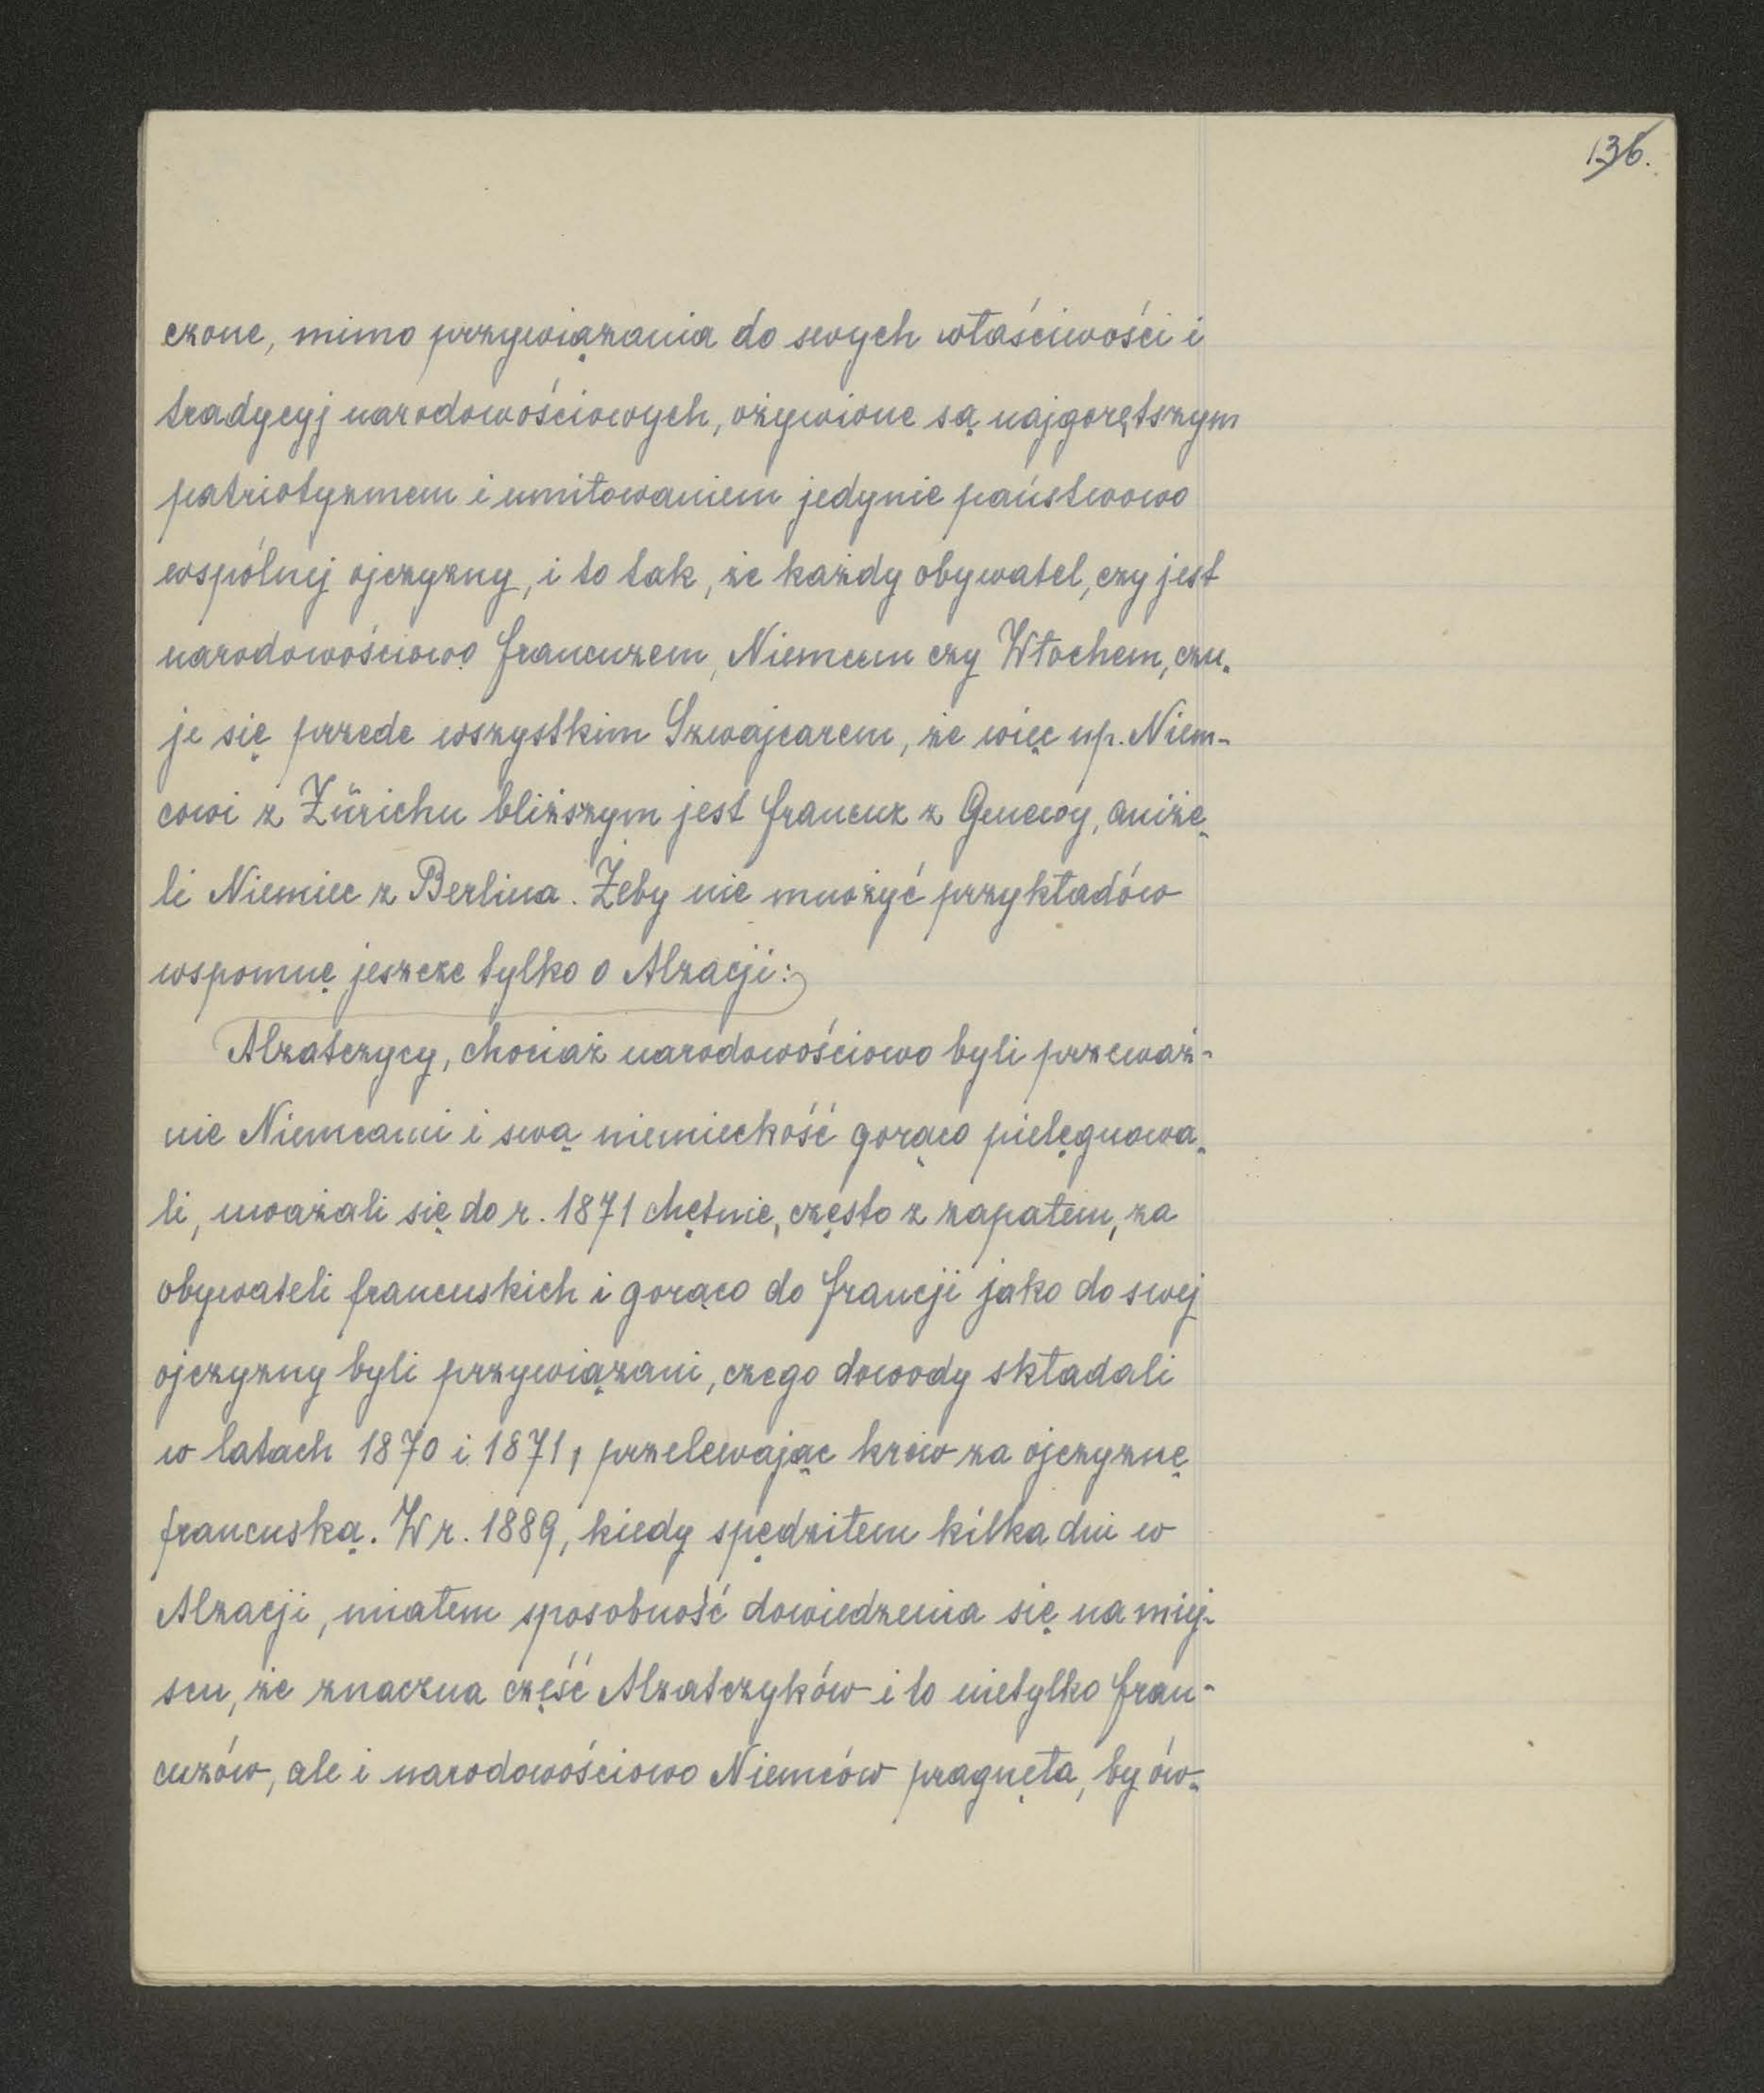 136.
czone, mimo przywiązania do swych właściwości i
tradycyj narodowościowych, ożywione są najgorętszym
patriotyzmem i umiłowaniem jedynie państwowo
wspólnej ojczyzny, i to tak, że każdy obywatel, czy jest
narodowościowo francuzem, Niemcem czy Włochem, czu-
je się przede wszystkim Szwajcarem, że więc np. Niem-
cowi z Zürichu bliższym jest francuz z Genewy, aniże-
li Niemiec z Berlina. Żeby nie mnożyć przykładów
wspomnę jeszcze tylko o Alzacji:
Alzatczycy, chociaż narodowościowo byli przeważ-
nie Niemcami i swą niemieckość gorąco pielęgnowa-
li, uważali się do r. 1871 chętnie, często z zapałem, za
obywateli francuskich i gorąco do francji jako do swej
ojczyzny byli przywiązani, czego dowody składali
w latach 1870 i 1871, przelewając krew za ojczyznę
francuską. W r. 1889, kiedy spędziłem kilka dni w
Alzacji, miałem sposobność dowiedzenia się na miej-
scu, że znaczna część Alzatczyków i to nietylko fran-
cuzów, ale i narodowościowo Niemców pragnęła, by ów-